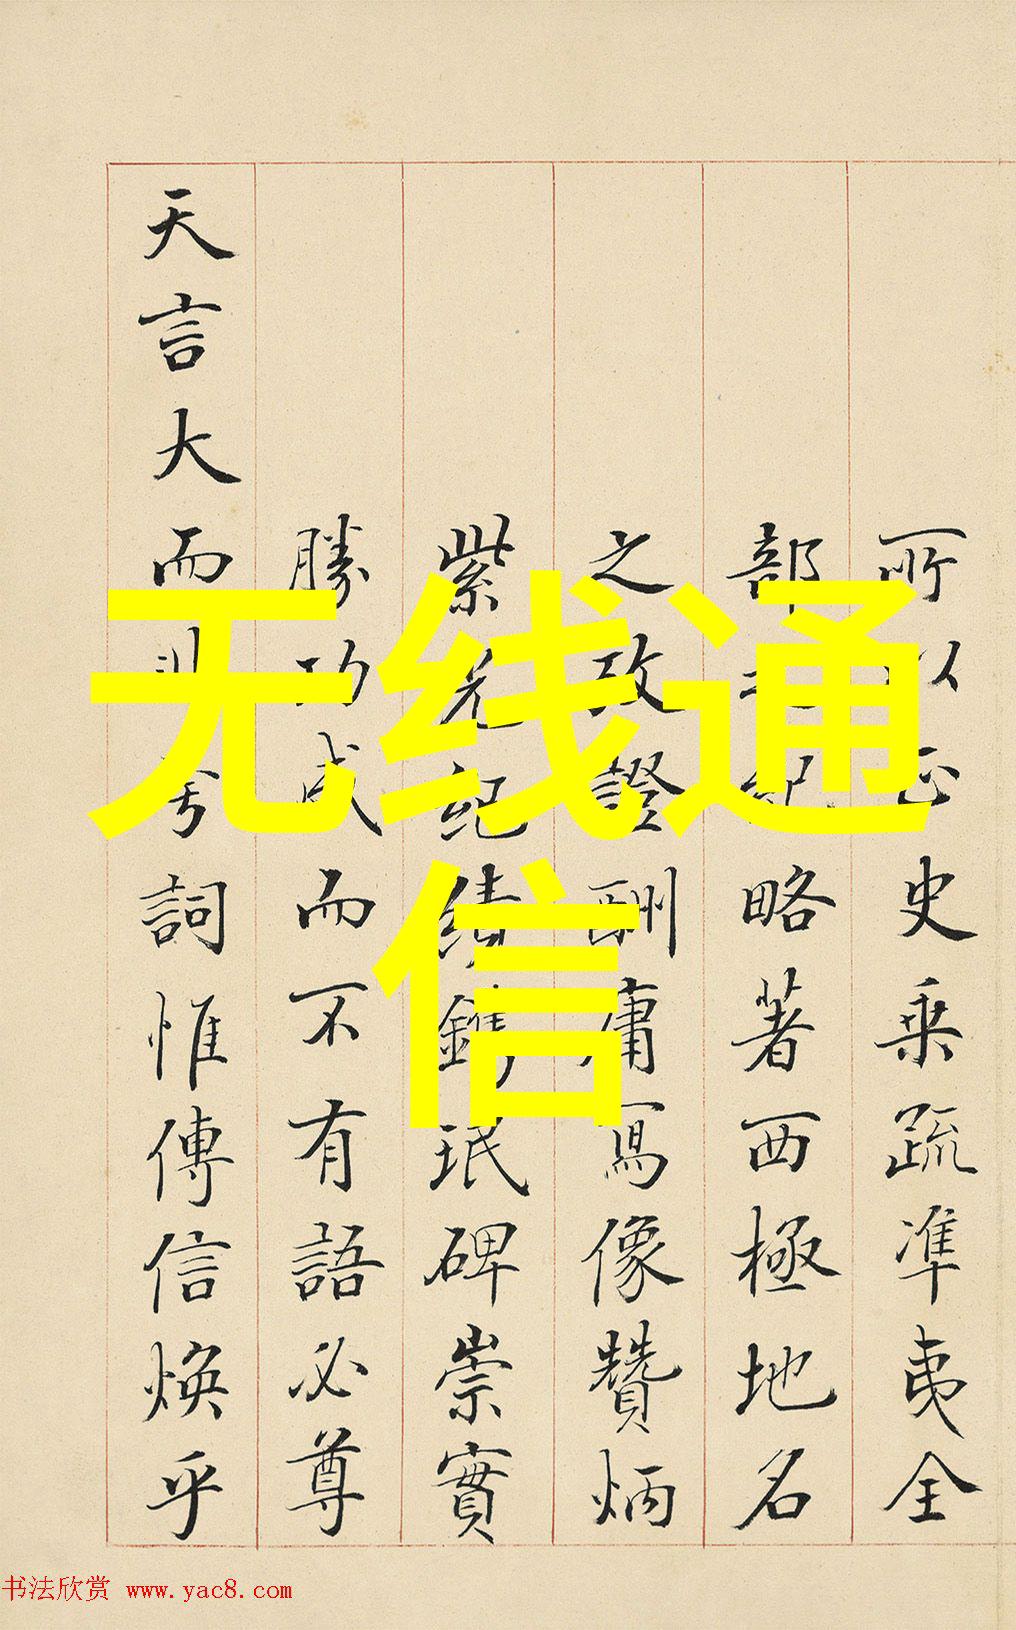 无线通
信
所以正史乘疏準夷全
部紀略著西極地名
之攷證酬庸寫像贊炳
紫光紀績鐫珉碑崇實
勝功成而不有語必尊
天言大而非夸詞惟傳信煥乎
书法欣赏 www.yac8.com